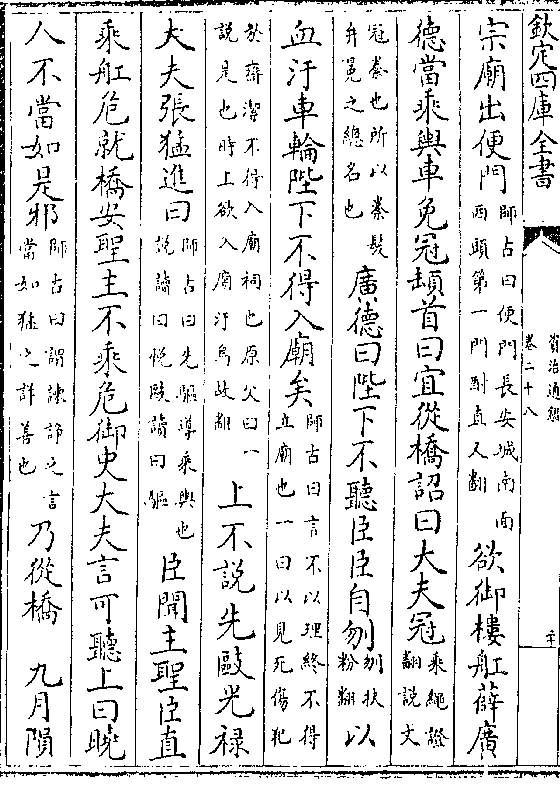 欽定四庫全書
資治通鑑
卷二十八
宗廟出便門師古曰便門長安城南面西頭第一門酎直又翻欲御樓舡薛廣
德當乘輿車免冠頓首曰宜從橋詔曰大夫冠乘繩證翻說文
冠絭也所以絭髮弁冕之總名也廣德曰陛下不聽臣臣自刎刎扶粉翻以
血汙車輪陛下不得入廟矣師古曰言不以理終不得立廟也一曰以見死傷犯
於齋潔不得入廟祠也原父曰一說是也時上欲入廟汙烏故翻上不說先敺光祿
大夫張猛進曰師古曰先驅導乘輿也說讀曰悅敺讀曰驅臣聞主聖臣直
乘舡危就橋安聖主不乘危御史大夫言可聽上曰曉
人不當如是邪師古曰謂諫諍之言當如猛之詳善也乃從橋 九月隕